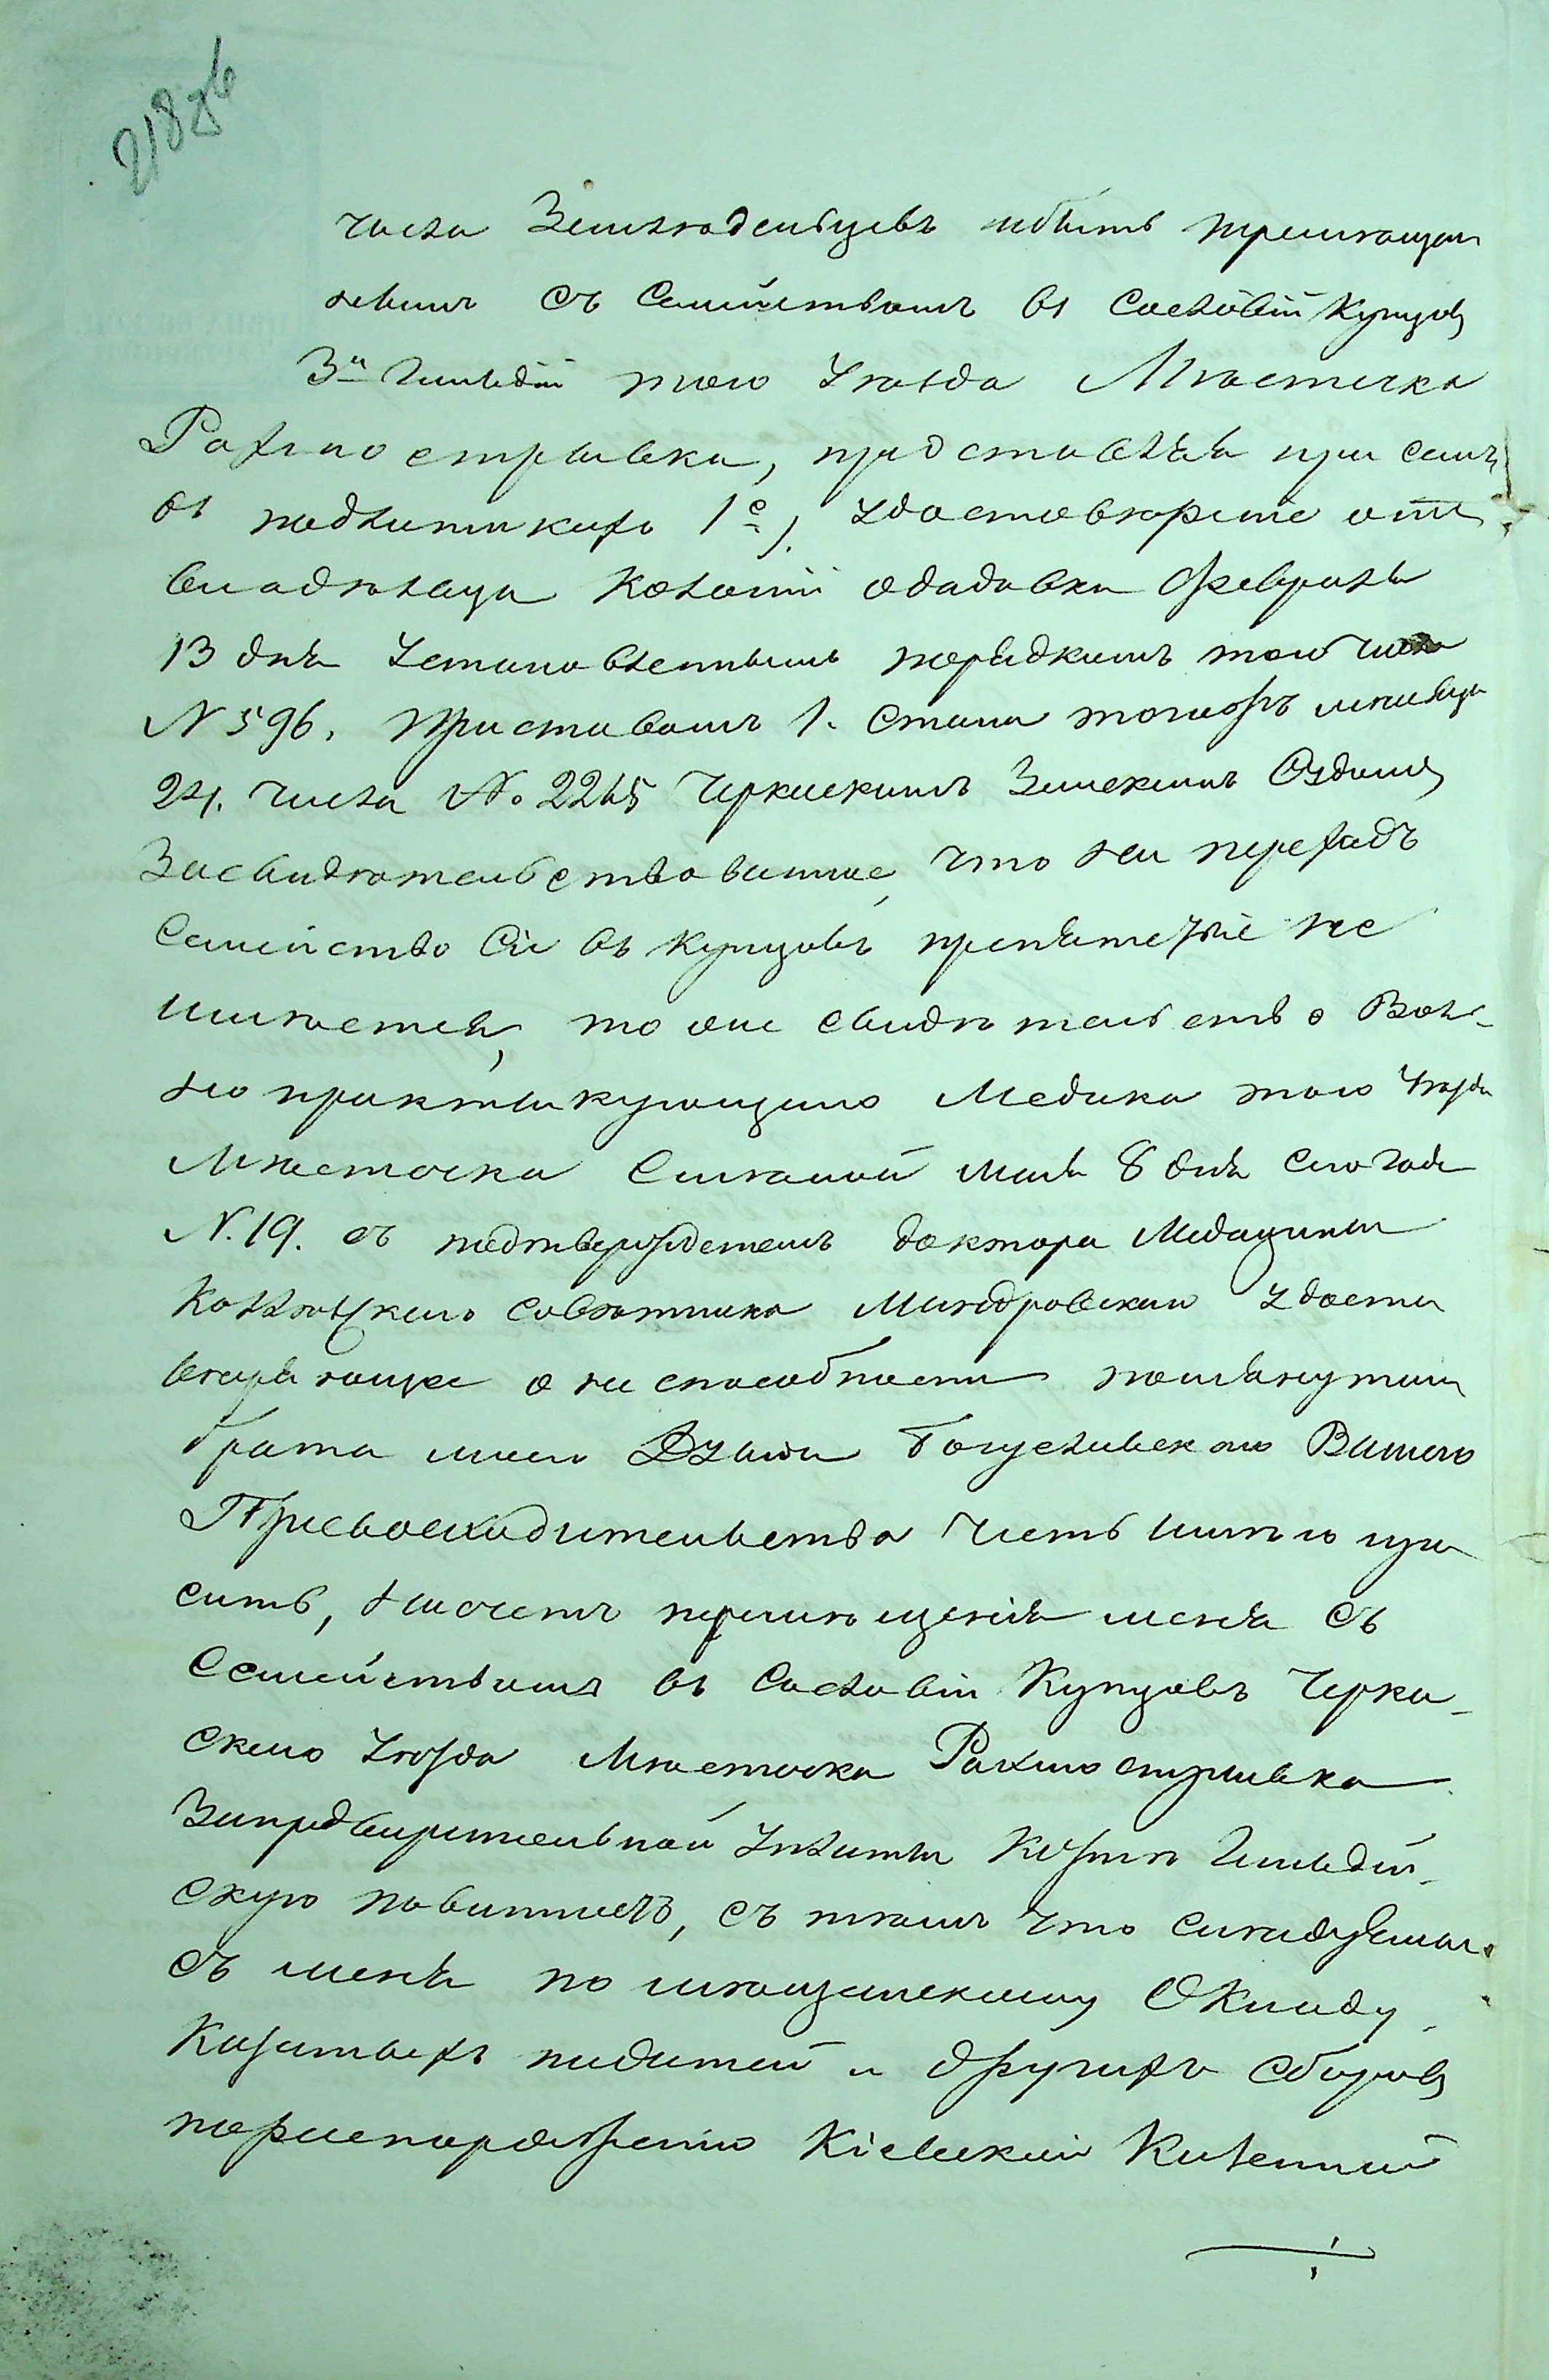 218 об
числа Земляделбцевъ избыть пр
нымъ съ Семействомъ въ Сословій Купцовъ
3й Гильдіи того Уѣзда Мѣстечка
Рахмостривки, представляя при семъ
въ подлиникахъ 1е). удостовѣреніе отъ
владѣлца Колоніи февраля
13 дня Установленнымъ порядкомъ того числа
N 596. Приставомъ 1. Стана тогожъ мѣсяца
24. числа No. 2265 Черкаскимъ Земскимъ Судомъ
Засвидѣтелбствованное, что на переходъ
Семейство Сіе въ Купцовъ препятствіе не
имѣется, то оне свидѣтелбство Воль-
но практикующаго Медика того Уѣзда
Мѣстечка Смѣлой Мая 8 дня сего года
N. 19. съ подтвержденіемъ доктора Медицины
Коллѣжскаго Совѣтника удосто
вѣряющее о не способности помянутаго
брата моего Богуславскаго Вашего
Превосходительства честь имѣю про
ситъ, насчетъ перемѣщенія меня съ
Семействомъ въ Сословій Купцовъ Черка-
скаго Уѣзда Мѣстечка Рахмостривка
Запредварительной Уплаты Мною Гильдій-
скую повинность, съ тѣмъ что слѣдуемы
съ меня по мѣщанскому Окладу
Казеныхъ податей и другихъ сборовъ
пораспоряженію Кіевскай Казенной